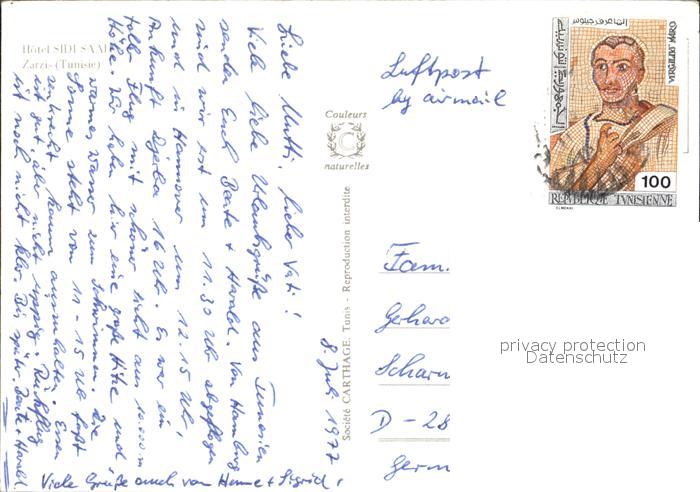 Hôtel SIDI SAAD
Zarzis (Tunisie)
8. Juli 1977
Liebe Mutti, lieber Vati!
Viele liebe Urlaubsgrüße aus Tunesien
senden Euch Harald. Von Hamburg
sind wir erst um 11.30 Uhr abgeflogen
und in Hannover um 12.15 Uhr,
Ankunft Djerba 16 Uhr. Es war ein
toller Flug mit schöner Sicht aus 10.000 m
Höhe. Wir haben hier eine große Hitze und
warmes Wasser zum Schwimmen. Die
Sonne steht von 11 - 15 Uhr fast
senkrecht kaum auszuhalten. Essen
ist gut, aber nicht üppig. Rückflug
ist noch nicht klar. Bis später. Harald
Viele Grüße auch von Hanne + Sigrid,
Couleurs
C
naturelles
Société CARTHAGE, Tunis - Reproduction interdite
Luftpost
by airmail
VERGILIUS MARO
100
REPUBLIQUE TUNISIENNE
Fam.
Gerhard
Scharn
D-28
Germ
privacy protection
Datenschutz